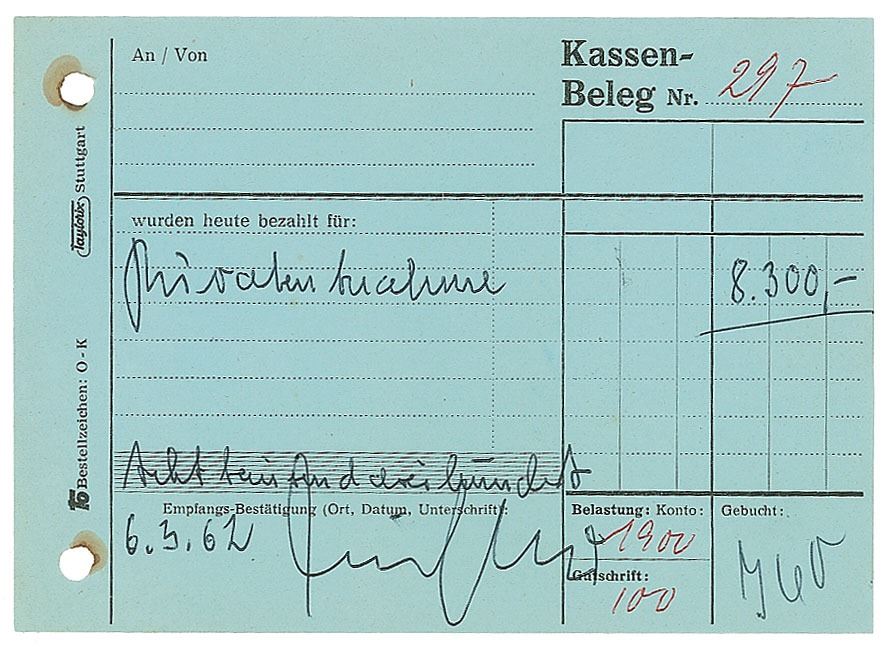 An / Von
Kassen-
Beleg Nr. 297
wurden heute bezahlt für:
Privatentnahme
8.300,-
Achttausenddreihundert
Empfangs-Bestätigung (Ort, Datum, Unterschrift):
6.3.62
Belastung: Konto:
1900
Gutschrift:
100
Gebucht:
Taylorix Stuttgart
Bestellzeichen: O - K